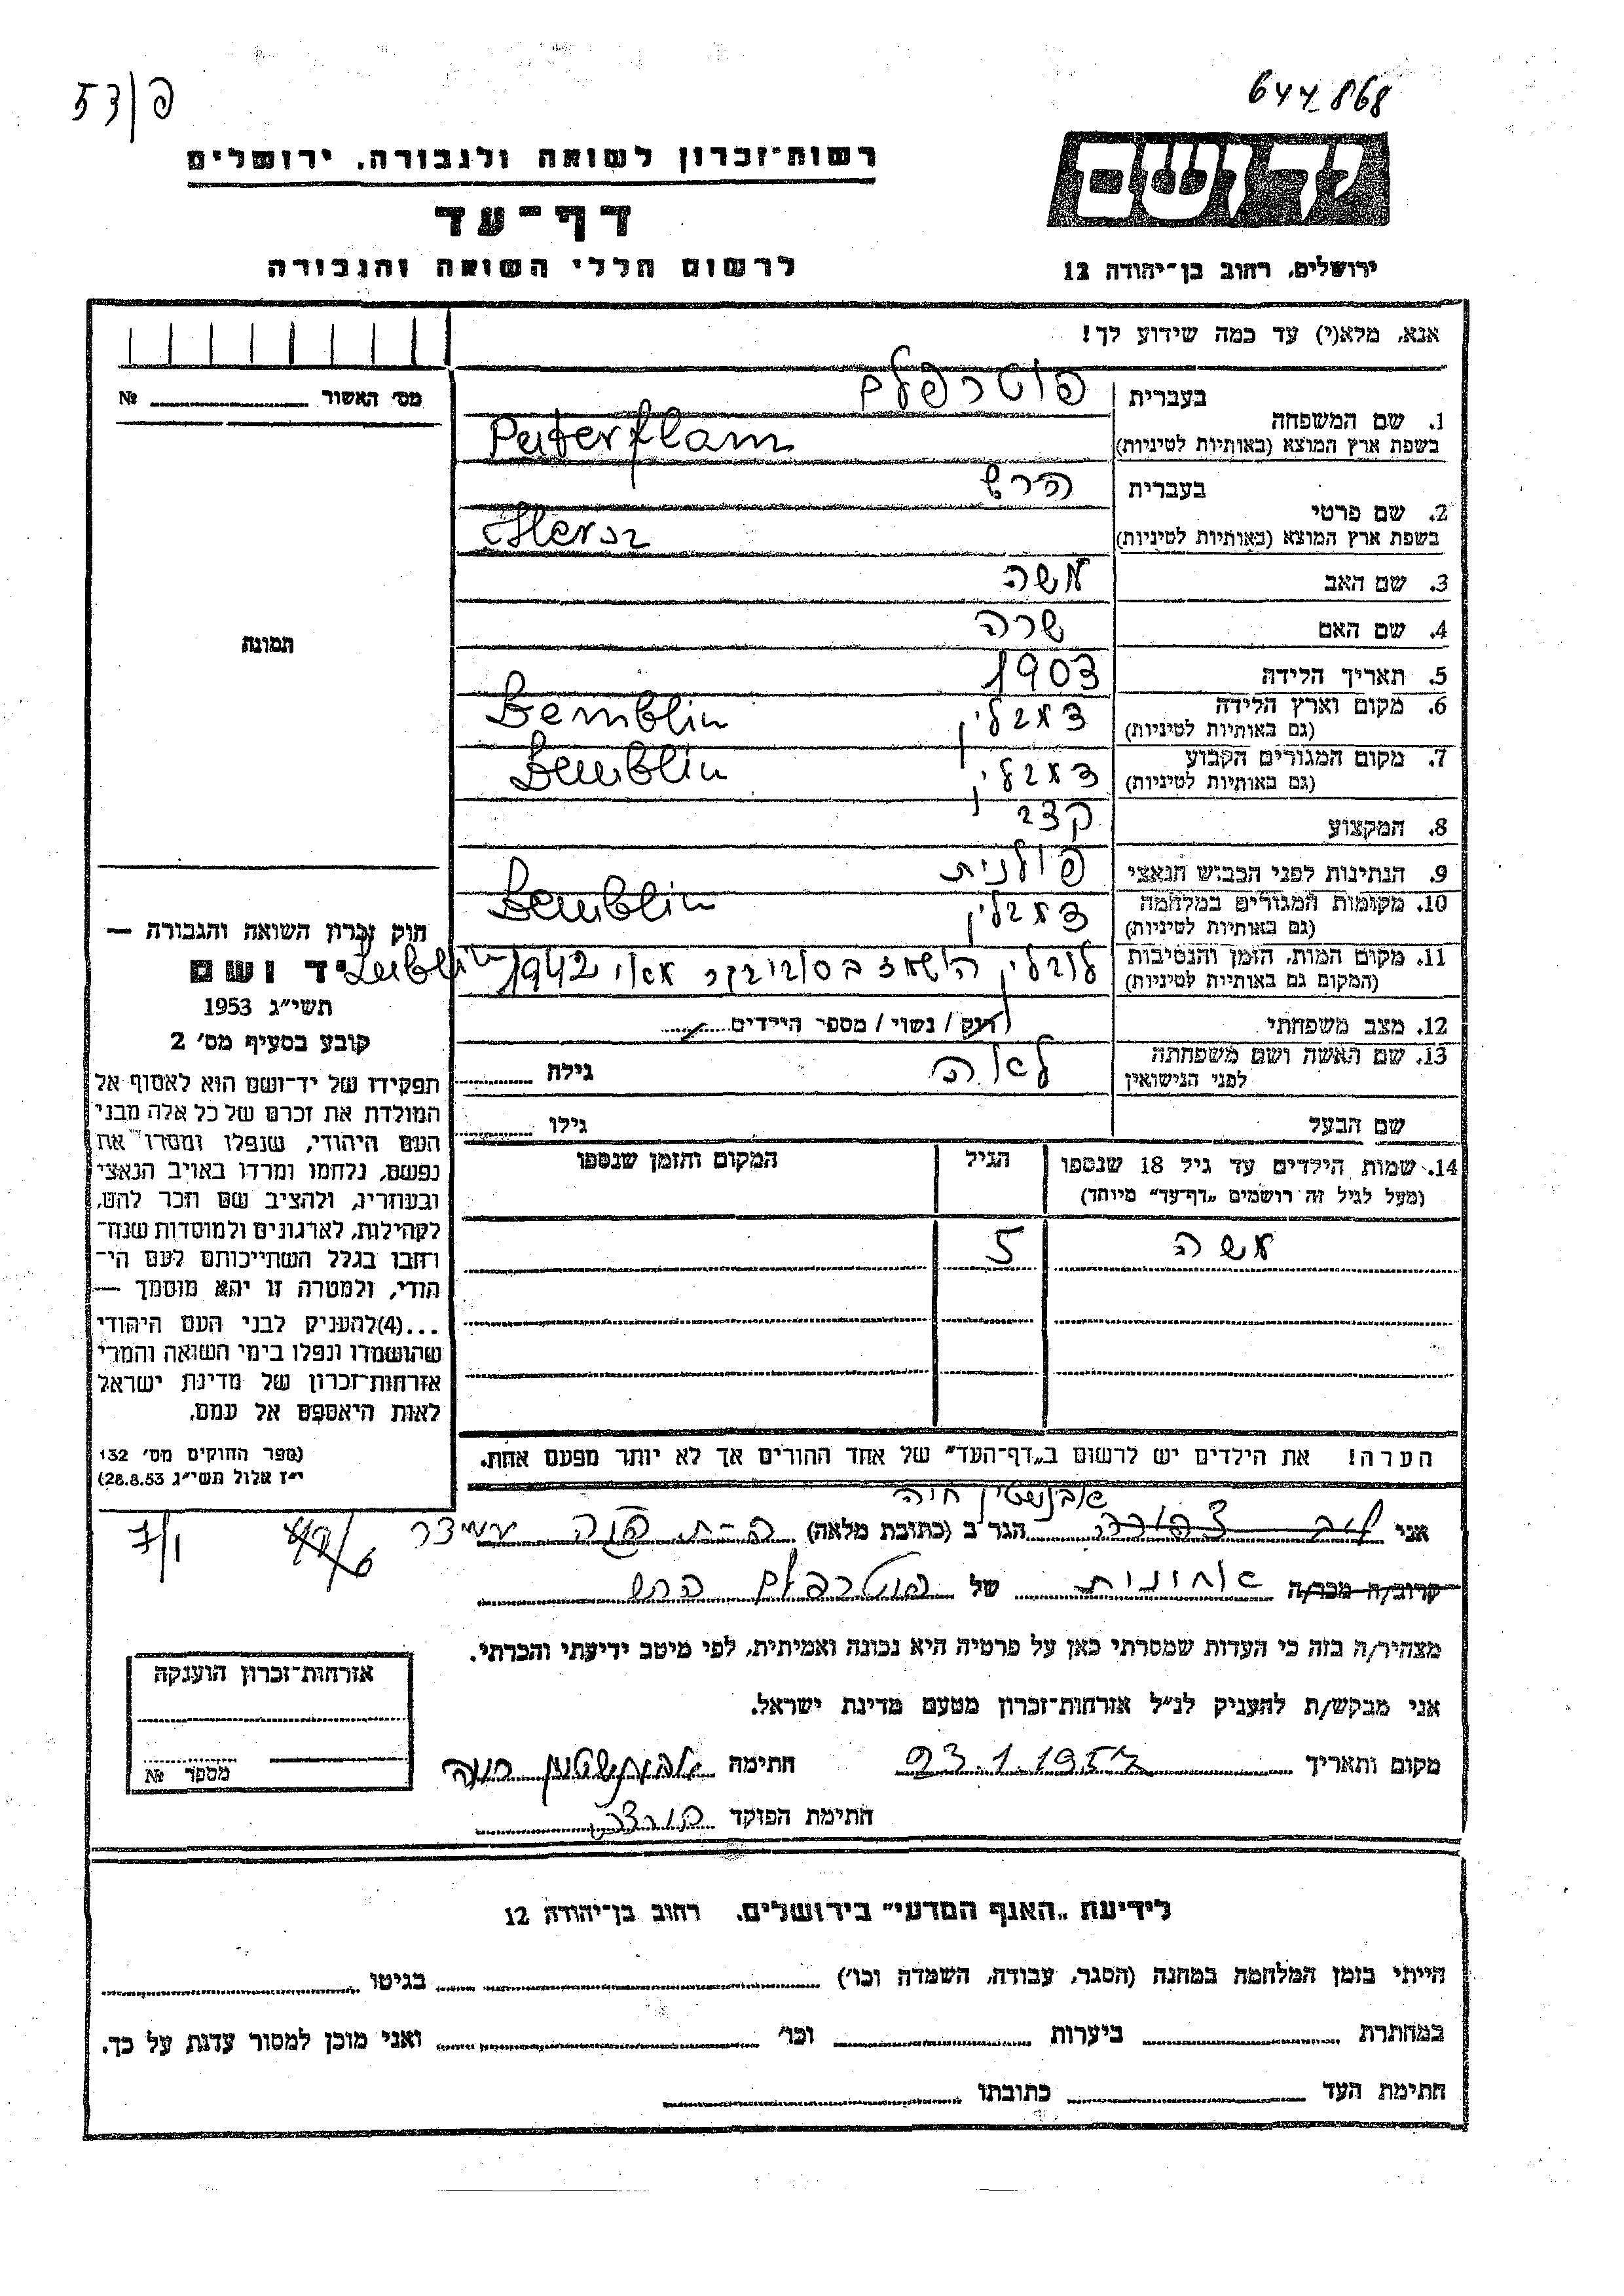 פ/53
644868
רשות־זכרון לשואה ולגבורה, ירושלים
יד ושם
דף־עד
לרשום חללי השואה והגבורה
ירושלים, רחוב בן־יהודה 12
אנא, מלא(י) עד כמה שידוע לך!
מס׳ האשור № 
1. שם המשפחה
בעברית פוטרפלם
בשפת ארץ המוצא (באותיות לטיניות) Puterflam
2. שם פרטי
בעברית הרש
בשפת ארץ המוצא (באותיות לטיניות) Hersz
3. שם האב משה
4. שם האם שרה
5. תאריך הלידה 1903
6. מקום וארץ הלידה
(גם באותיות לטיניות) דמבלין Demblin
7. מקום המגורים הקבוע
(גם באותיות לטיניות) דמבלין Demblin
8. המקצוע קצב
9. הנתינות לפני הכבוש הנאצי פולנית
10. מקומות המגורים במלחמה
(גם באותיות לטיניות) דמבלין Demblin
11. מקום המות, הזמן והנסיבות
(המקום גם באותיות לטיניות) לובלין הושמד בסוביבור מאי 1942 Lublin
12. מצב משפחתי רוק / נשוי / מספר הילדים
13. שם האשה ושם משפחתה
לפני הנישואין לאה גילה
שם הבעל גילו
14. שמות הילדים עד גיל 18 שנספו
(מעל לגיל זה רושמים „דף־עד” מיוחד)
הגיל
המקום והזמן שנספו
משה 5
הערה! את הילדים יש לרשום ב„דף־העד” של אחד ההורים אך לא יותר מפעם אחת.
תמונה
חוק זכרון השואה והגבורה —
יד ושם
תשי״ג 1953
קובע בסעיף מס׳ 2
תפקידו של יד־ושם הוא לאסוף אל
המולדת את זכרם של כל אלה מבני
העם היהודי, שנפלו ומסרו את
נפשם, נלחמו ומרדו באויב הנאצי
ובעוזריו, ולהציב שם וזכר להם,
לקהילות, לארגונים ולמוסדות שנח־
רבו בגלל השתייכותם לעם הי־
הודי, ולמטרה זו יהא מוסמך —
...(4)להעניק לבני העם היהודי
שהושמדו ונפלו בימי השואה והמרי
אזרחות־זכרון של מדינת ישראל
לאות היאספם אל עמם.
(ספר החוקים מס׳ 132
י״ז אלול תשי״ג 28.8.53)
חיה
אני הגר ב (כתובת מלאה)
קרוב/ה מכר/ה של פוטרפלם הרש
מצהיר/ה בזה כי העדות שמסרתי כאן על פרטיה היא נכונה ואמיתית, לפי מיטב ידיעתי והכרתי.
אני מבקש/ת להעניק לנ״ל אזרחות־זכרון מטעם מדינת ישראל.
מקום ותאריך 23.1.1957 חתימה
חתימת הפוקד
אזרחות־זכרון הוענקה
מספר №
לידיעת „האגף המדעי” בירושלים, רחוב בן־יהודה 12
הייתי בזמן המלחמה במחנה (הסגר, עבודה, השמדה וכו׳) בגיטו
במחתרת ביערות וכו׳ ואני מוכן למסור עדות על כך.
חתימת העד כתובתו